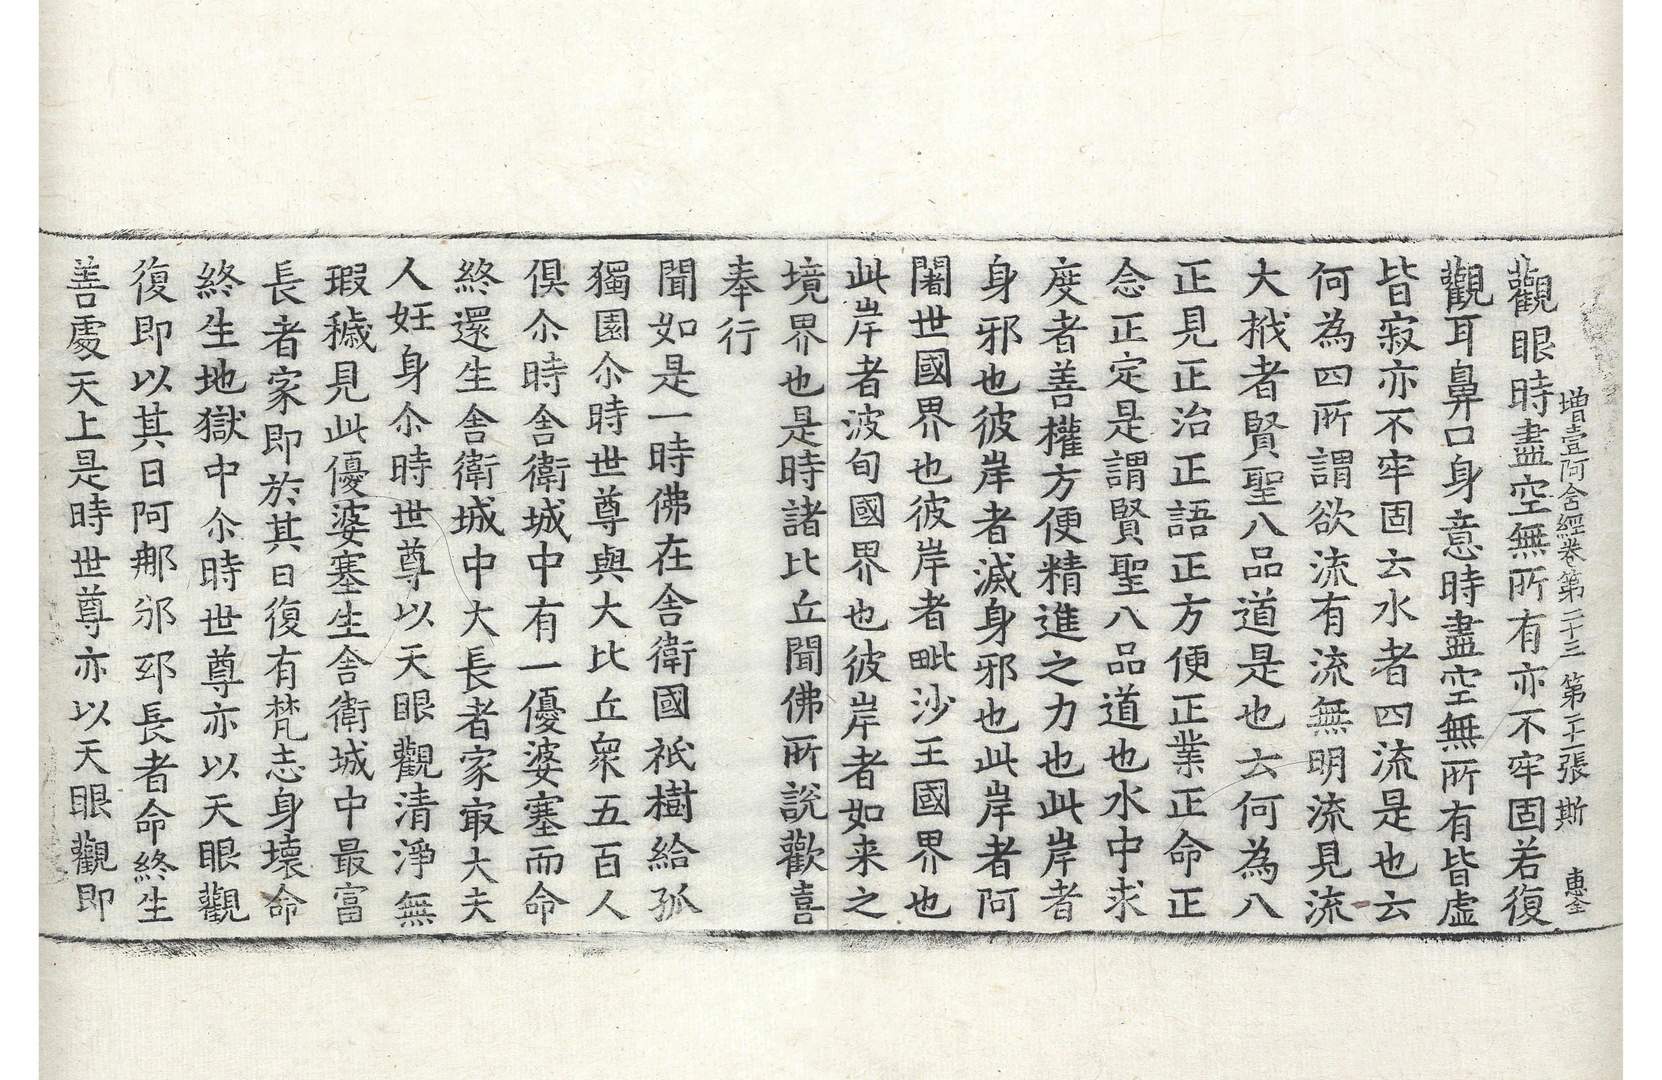 增壹阿含經卷第二十三 第二十張 斯 惠全
觀眼時盡空無所有亦不牢固若復
觀耳鼻口身意時盡空無所有皆虛
皆寂亦不牢固云水者四流是也云
何為四所謂欲流有流無明流見流
大栰者賢聖八品道是也云何為八
正見正治正語正方便正業正命正
念正定是謂賢聖八品道也水中求
度者善權方便精進之力也此岸者
身邪也彼岸者滅身邪也此岸者阿
闍世國界也彼岸者毗沙王國界也
此岸者波旬國界也彼岸者如来之
境界也是時諸比丘聞佛所說歡喜
奉行
聞如是一時佛在舍衛國祇樹給孤
獨園尒時世尊與大比丘衆五百人
俱尒時舍衛城中有一優婆塞而命
終還生舍衛城中大長者家最大夫
人妊身尒時世尊以天眼觀清淨無
瑕穢見此優婆塞生舍衛城中最富
長者家即於其日復有梵志身壞命
終生地獄中尒時世尊亦以天眼觀
復即以其日阿那邠邸長者命終生
善處天上是時世尊亦以天眼觀即